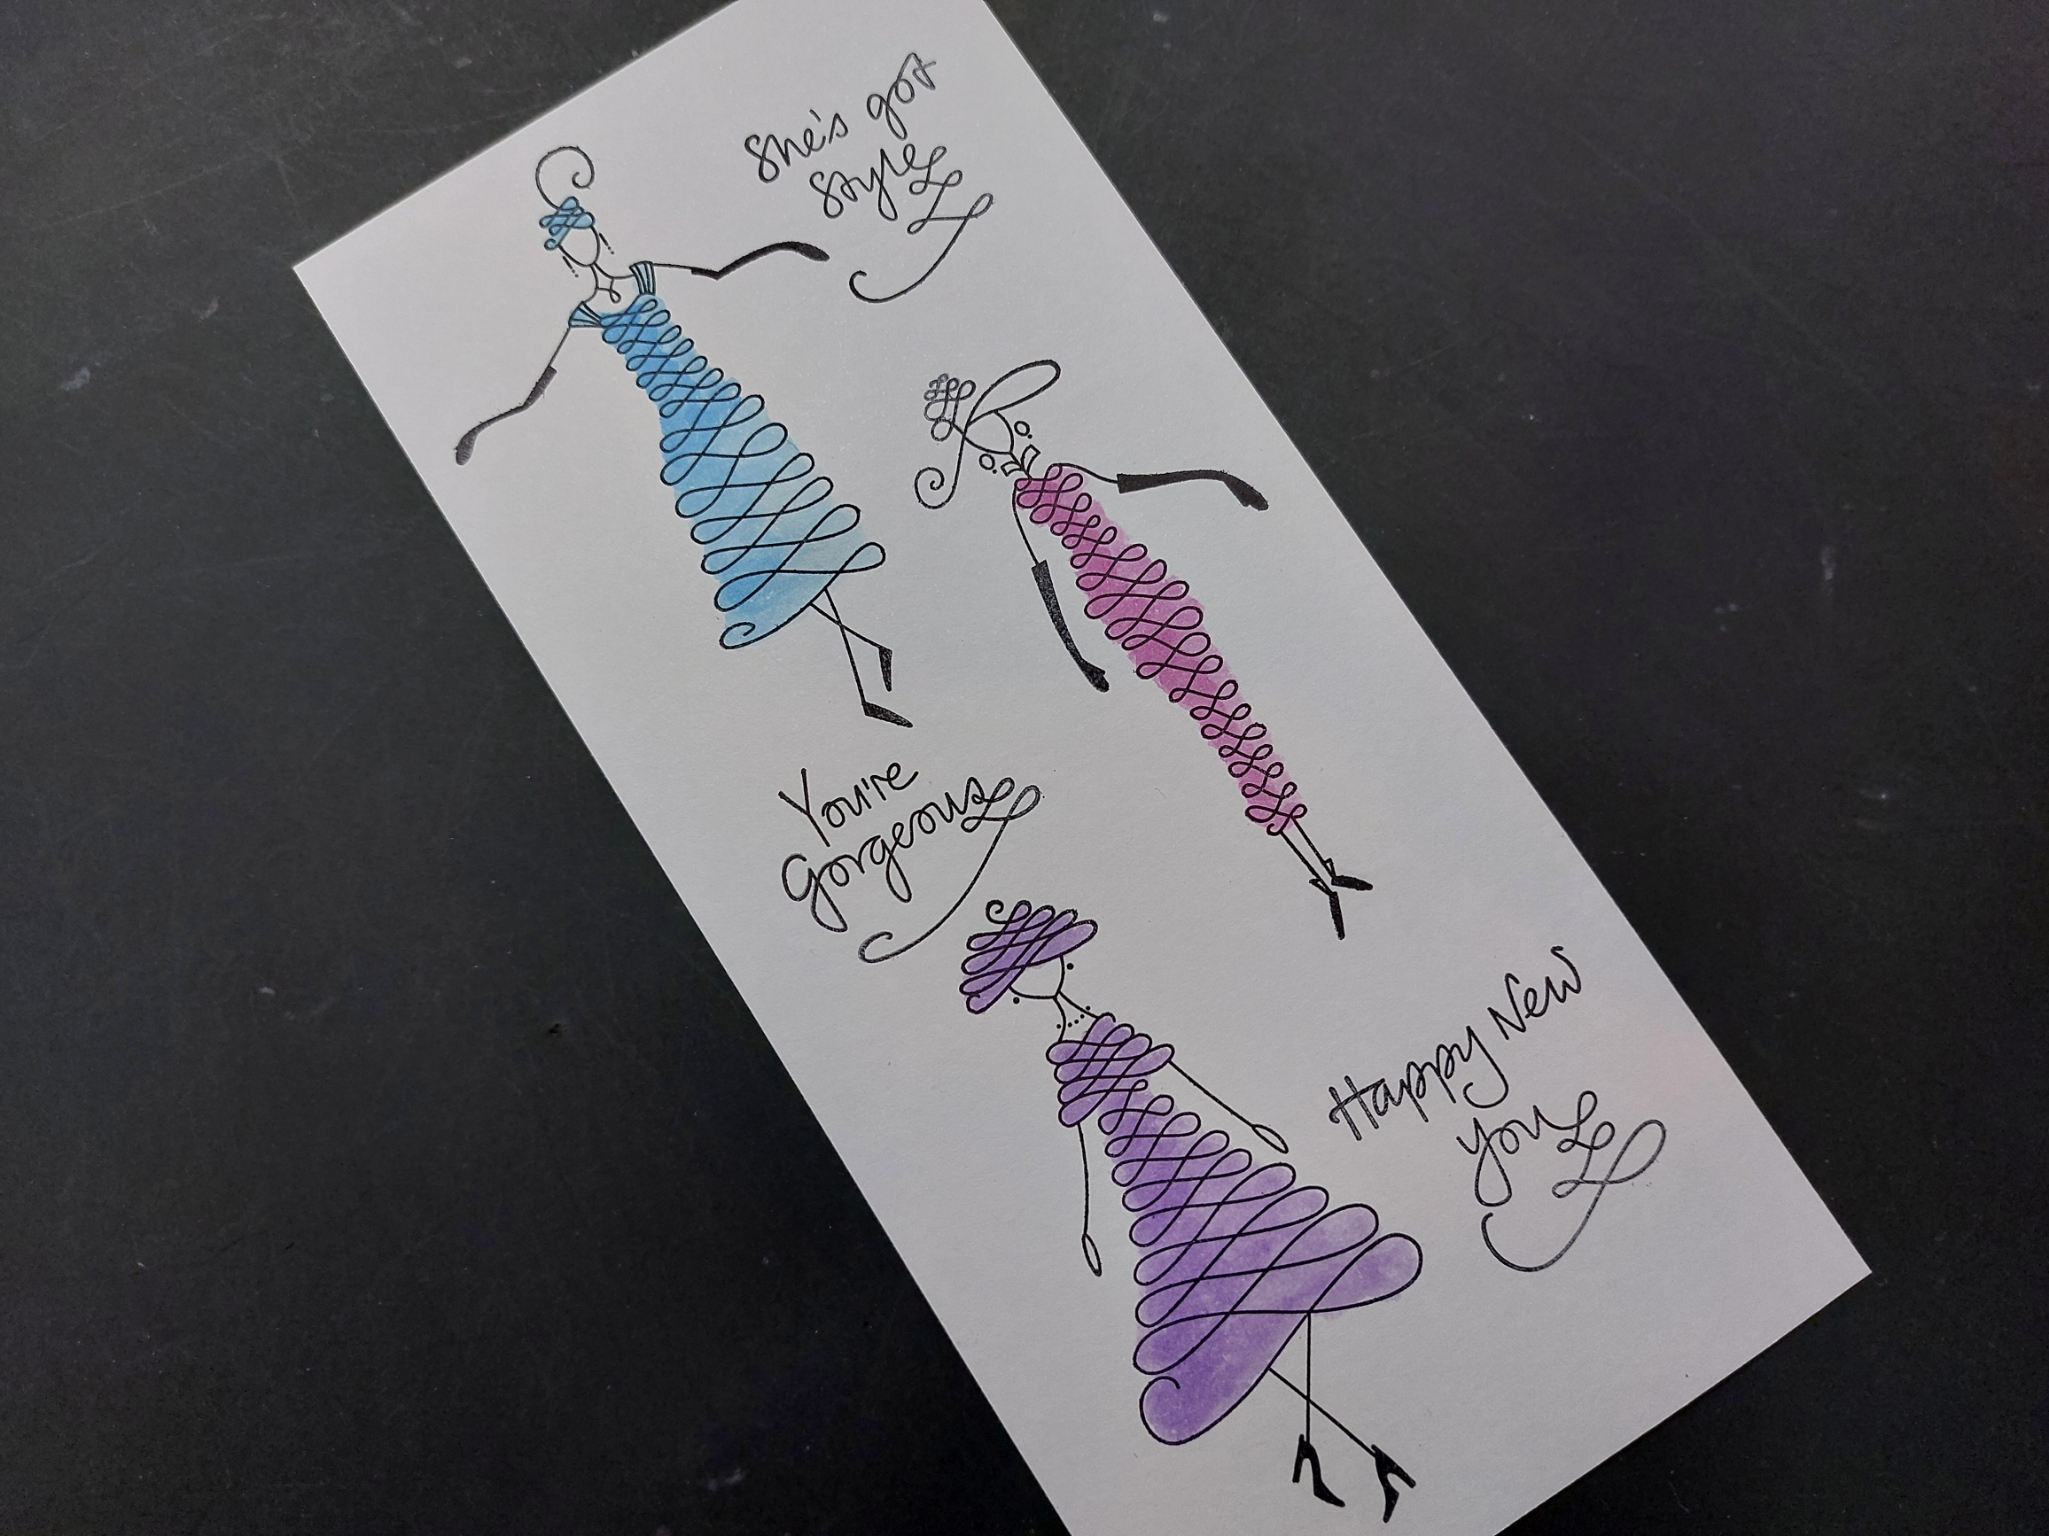 She's got
style
You're
Gorgeous
Happy New
you